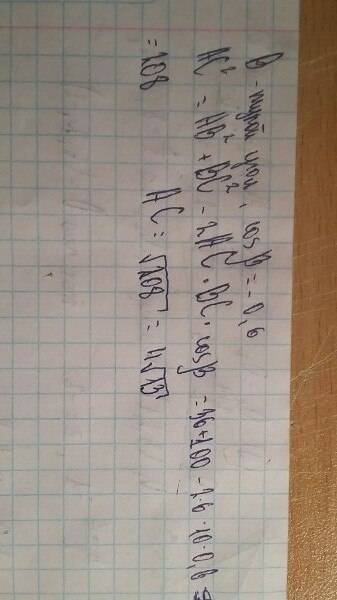 B - тупой угол, cos B = -0,6
AC² = AB² + BC² - 2AC · BC · cos B = 36+100 - 2·6·10·0,6 =
= 208 AC = √208 = 4√13